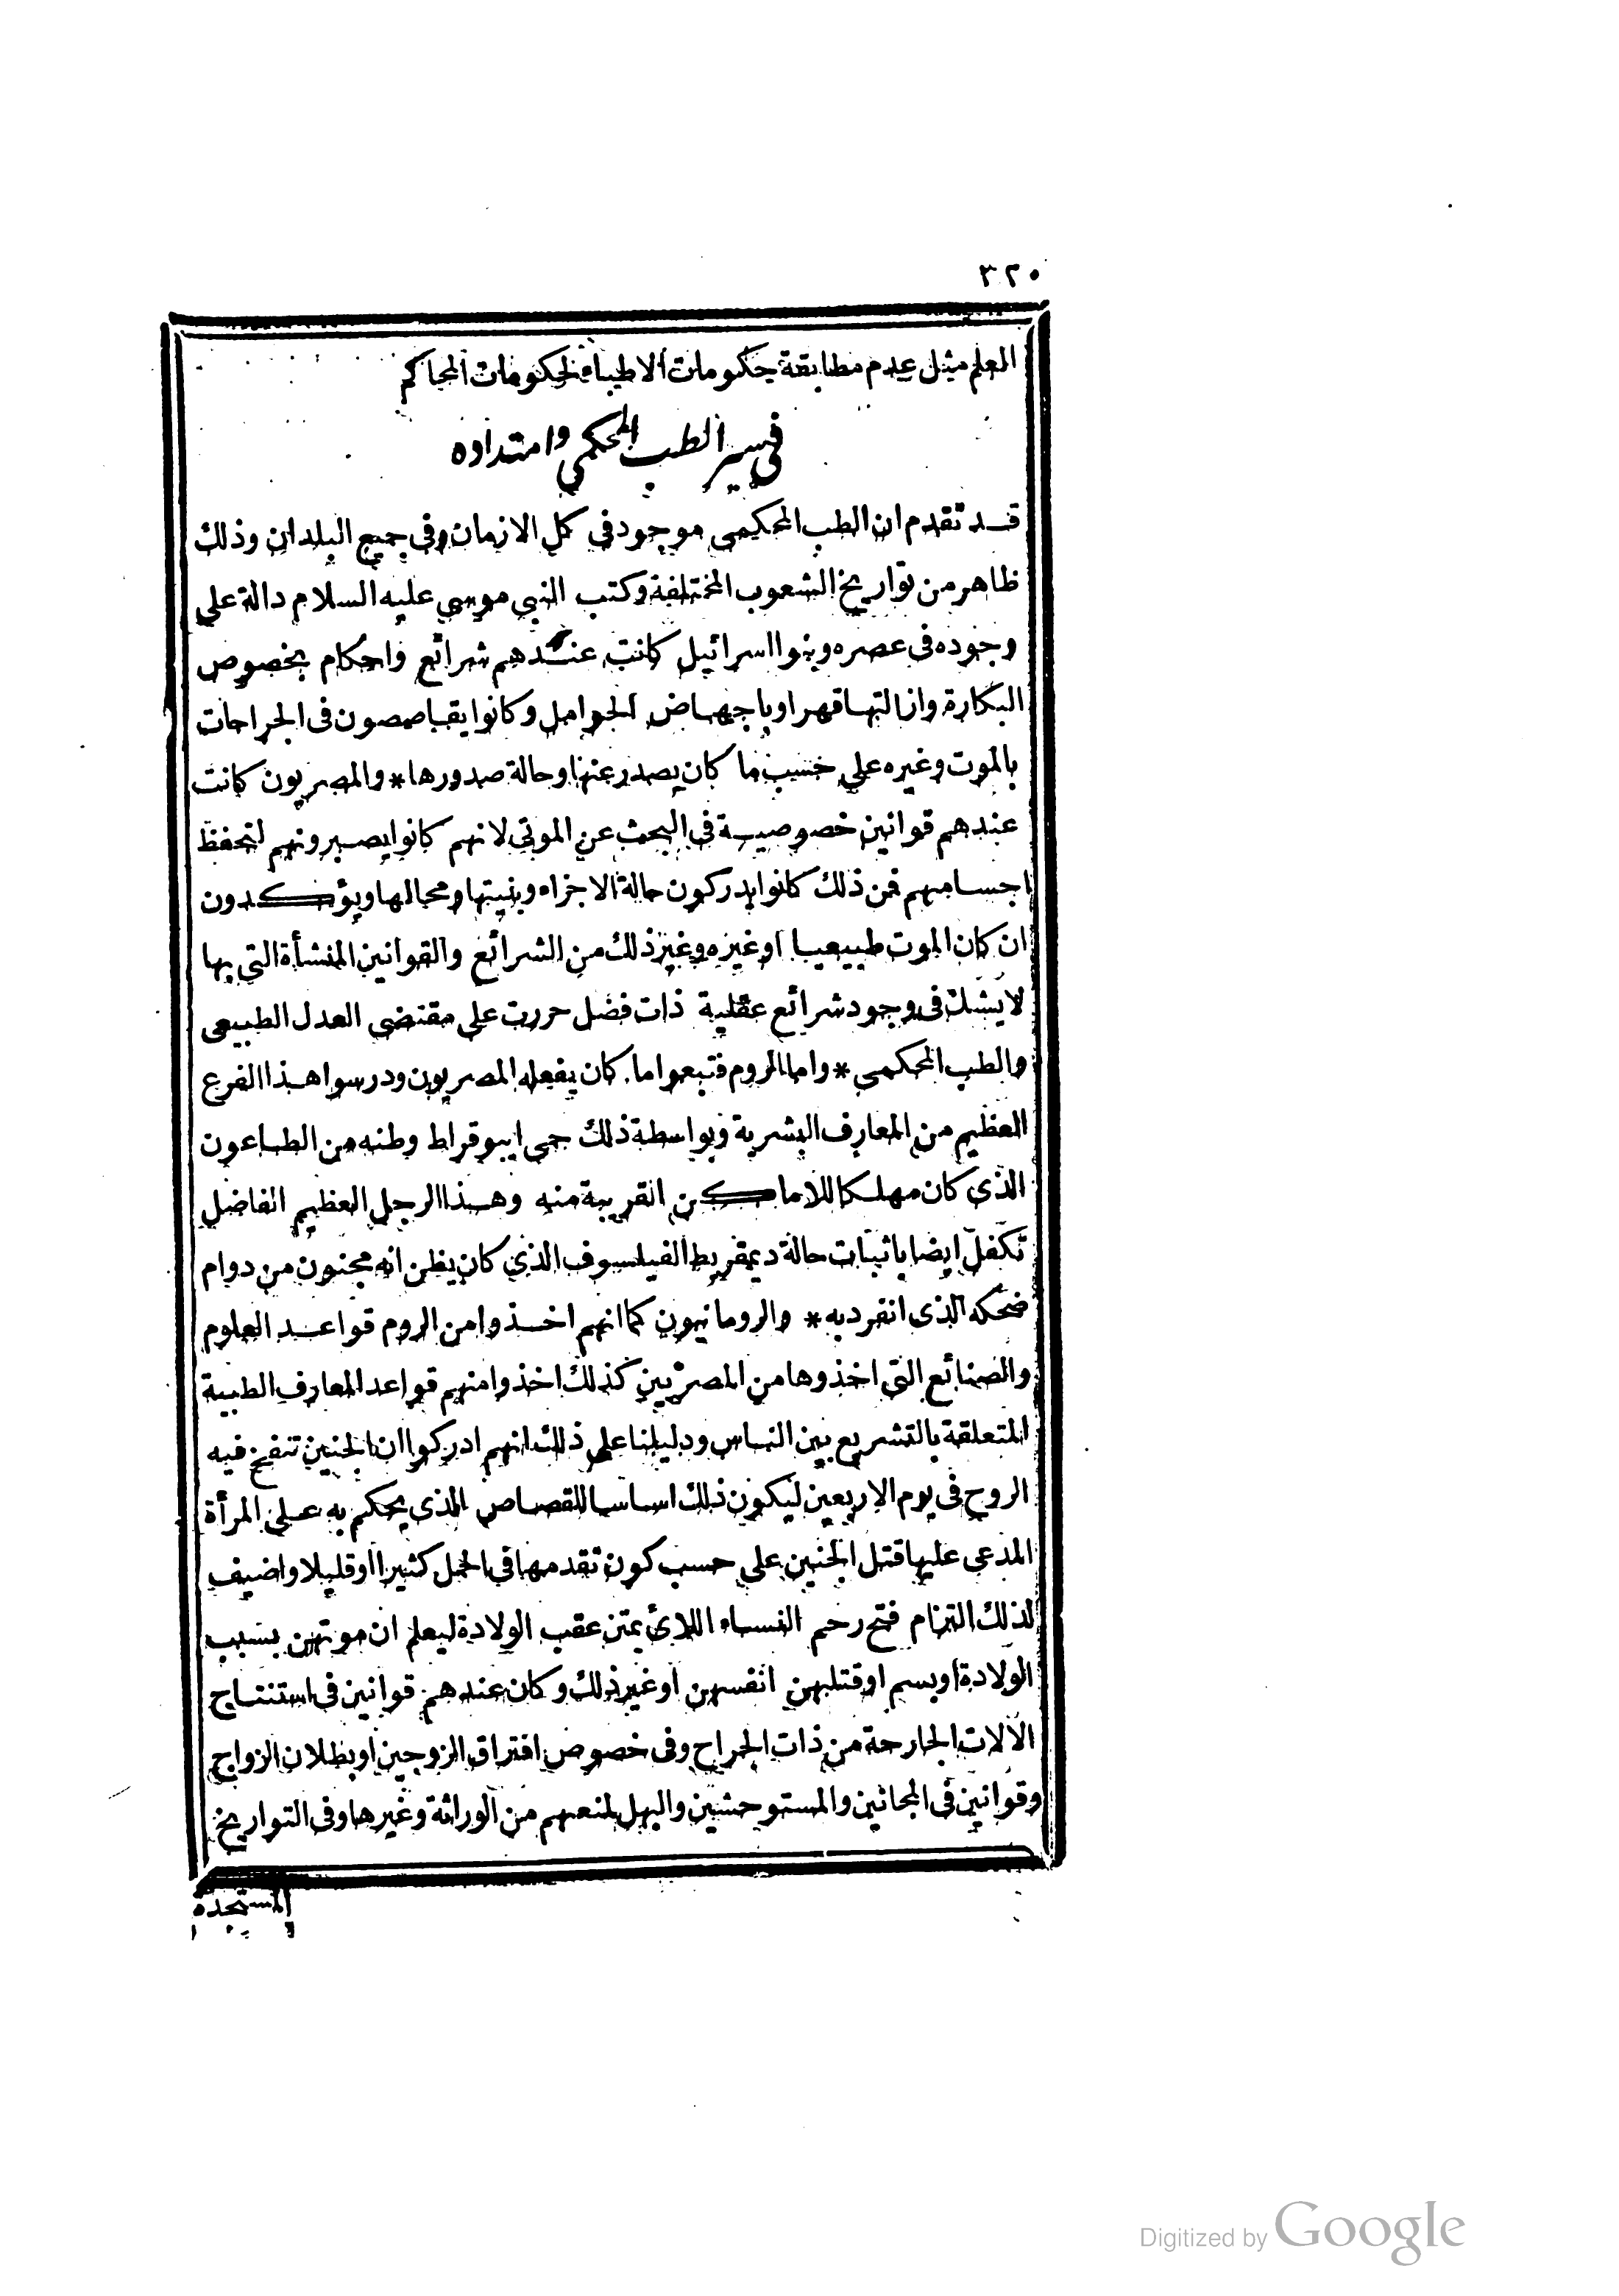 ٣٢٠
المعلم مثل عدم مطابقة حكومات الاطباء لحكومات المحاكم
فى سير الطب المحكمى وامتداده
قد تقدم ان الطب المحكمى موجود فى كل الازمان وفى جميع البلدان وذلك
ظاهر من تواريخ الشعوب المختلفة وكتب النبى موسى عليه السلام دالة على
وجوده فى عصره وبنوا اسرائيل كانت عندهم شرائع واحكام بخصوص
البكارة وازالتها قهرا او باجهاض الحوامل وكانوا يقاصصون فى الجراحات
بالموت وغيره على حسب ما كان يصدر عنها وحالة صدورها * والمصريون كانت
عندهم قوانين خصوصية فى البحث عن الموتى لانهم كانوا يصبرونهم لتحفظ
اجسامهم فمن ذلك كانوا يدركون حالة الاجزاء وبنيتها ومحالها ويؤكدون
ان كان الموت طبيعيا او غيره وغير ذلك من الشرائع والقوانين المنشأة التى بها
لا يشك فى وجود شرائع عقلية ذات فضل حررت على مقتضى العدل الطبيعى
والطب المحكمى * واما الروم فتبعوا ما كان يفعله المصريون ودرسوا هذا الفرع
العظيم من المعارف البشرية وبواسطة ذلك حمى ايبوقراط وطنه من الطاعون
الذى كان مهلكا للاماكن القريبة منه وهذا الرجل العظيم الفاضل
تكفل ايضا باثبات حالة ديمقريط الفيلسوف الذى كان يظن انه مجنون من دوام
ضحكه الذى انفرد به * والرومانيون كما انهم اخذوا من الروم قواعد العلوم
والصنائع التى اخذوها من المصريين كذلك اخذوا منهم قواعد المعارف الطبية
المتعلقة بالتشريع بين الناس ودليلنا على ذلك انهم ادركوا ان الجنين تنفخ فيه
الروح فى يوم الاربعين ليكون ذلك اساسا للقصاص الذى يحكم به على المرأة
المدعى عليها قتل الجنين على حسب كون تقدمها فى الحمل كثيرا او قليلا واضيف
لذلك التزام فتح رحم النساء اللائى يمتن عقب الولادة ليعلم ان موتهن بسبب
الولادة او بسم او قتلهن انفسهن او غير ذلك وكان عندهم قوانين فى استنتاج
الآلات الجارحة من ذات الجراح وفى خصوص افتراق الزوجين او بطلان الزواج
وقوانين فى المجانين والمستوحشين والبهل لمنعهم من الوراثة وغيرها وفى التواريخ
المستجدة
Digitized by Google